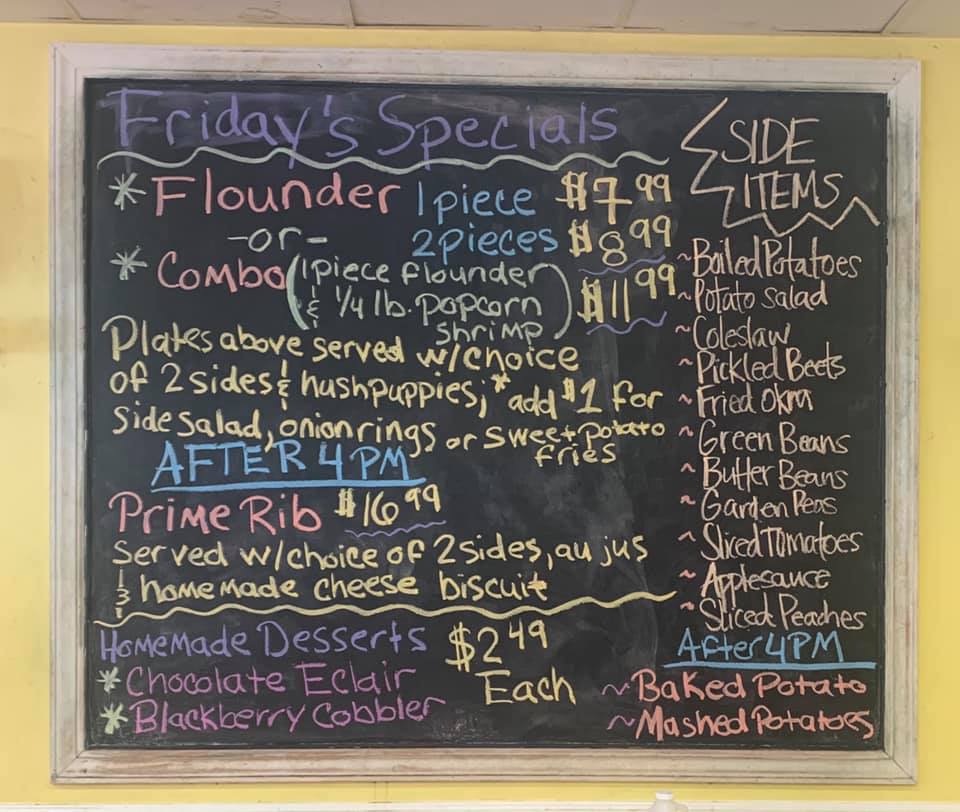 Friday's Specials
* Flounder 1 piece $7.99
-or- 2 pieces $8.99
* Combo (1 piece flounder & 1/4 lb. popcorn shrimp) $11.99
Plates above served w/choice
of 2 sides & hushpuppies; * add $1 for
side salad, onion rings or sweet potato
fries
AFTER 4 PM
Prime Rib $16.99
Served w/choice of 2 sides, au jus
& homemade cheese biscuit
Homemade Desserts $2.49
* Chocolate Eclair Each
* Blackberry Cobbler
SIDE
ITEMS
~ Boiled Potatoes
~ Potato Salad
~ Coleslaw
~ Pickled Beets
~ Fried Okra
~ Green Beans
~ Butter Beans
~ Garden Peas
~ Sliced Tomatoes
~ Applesauce
~ Sliced Peaches
After 4 PM
~ Baked Potato
~ Mashed Potatoes